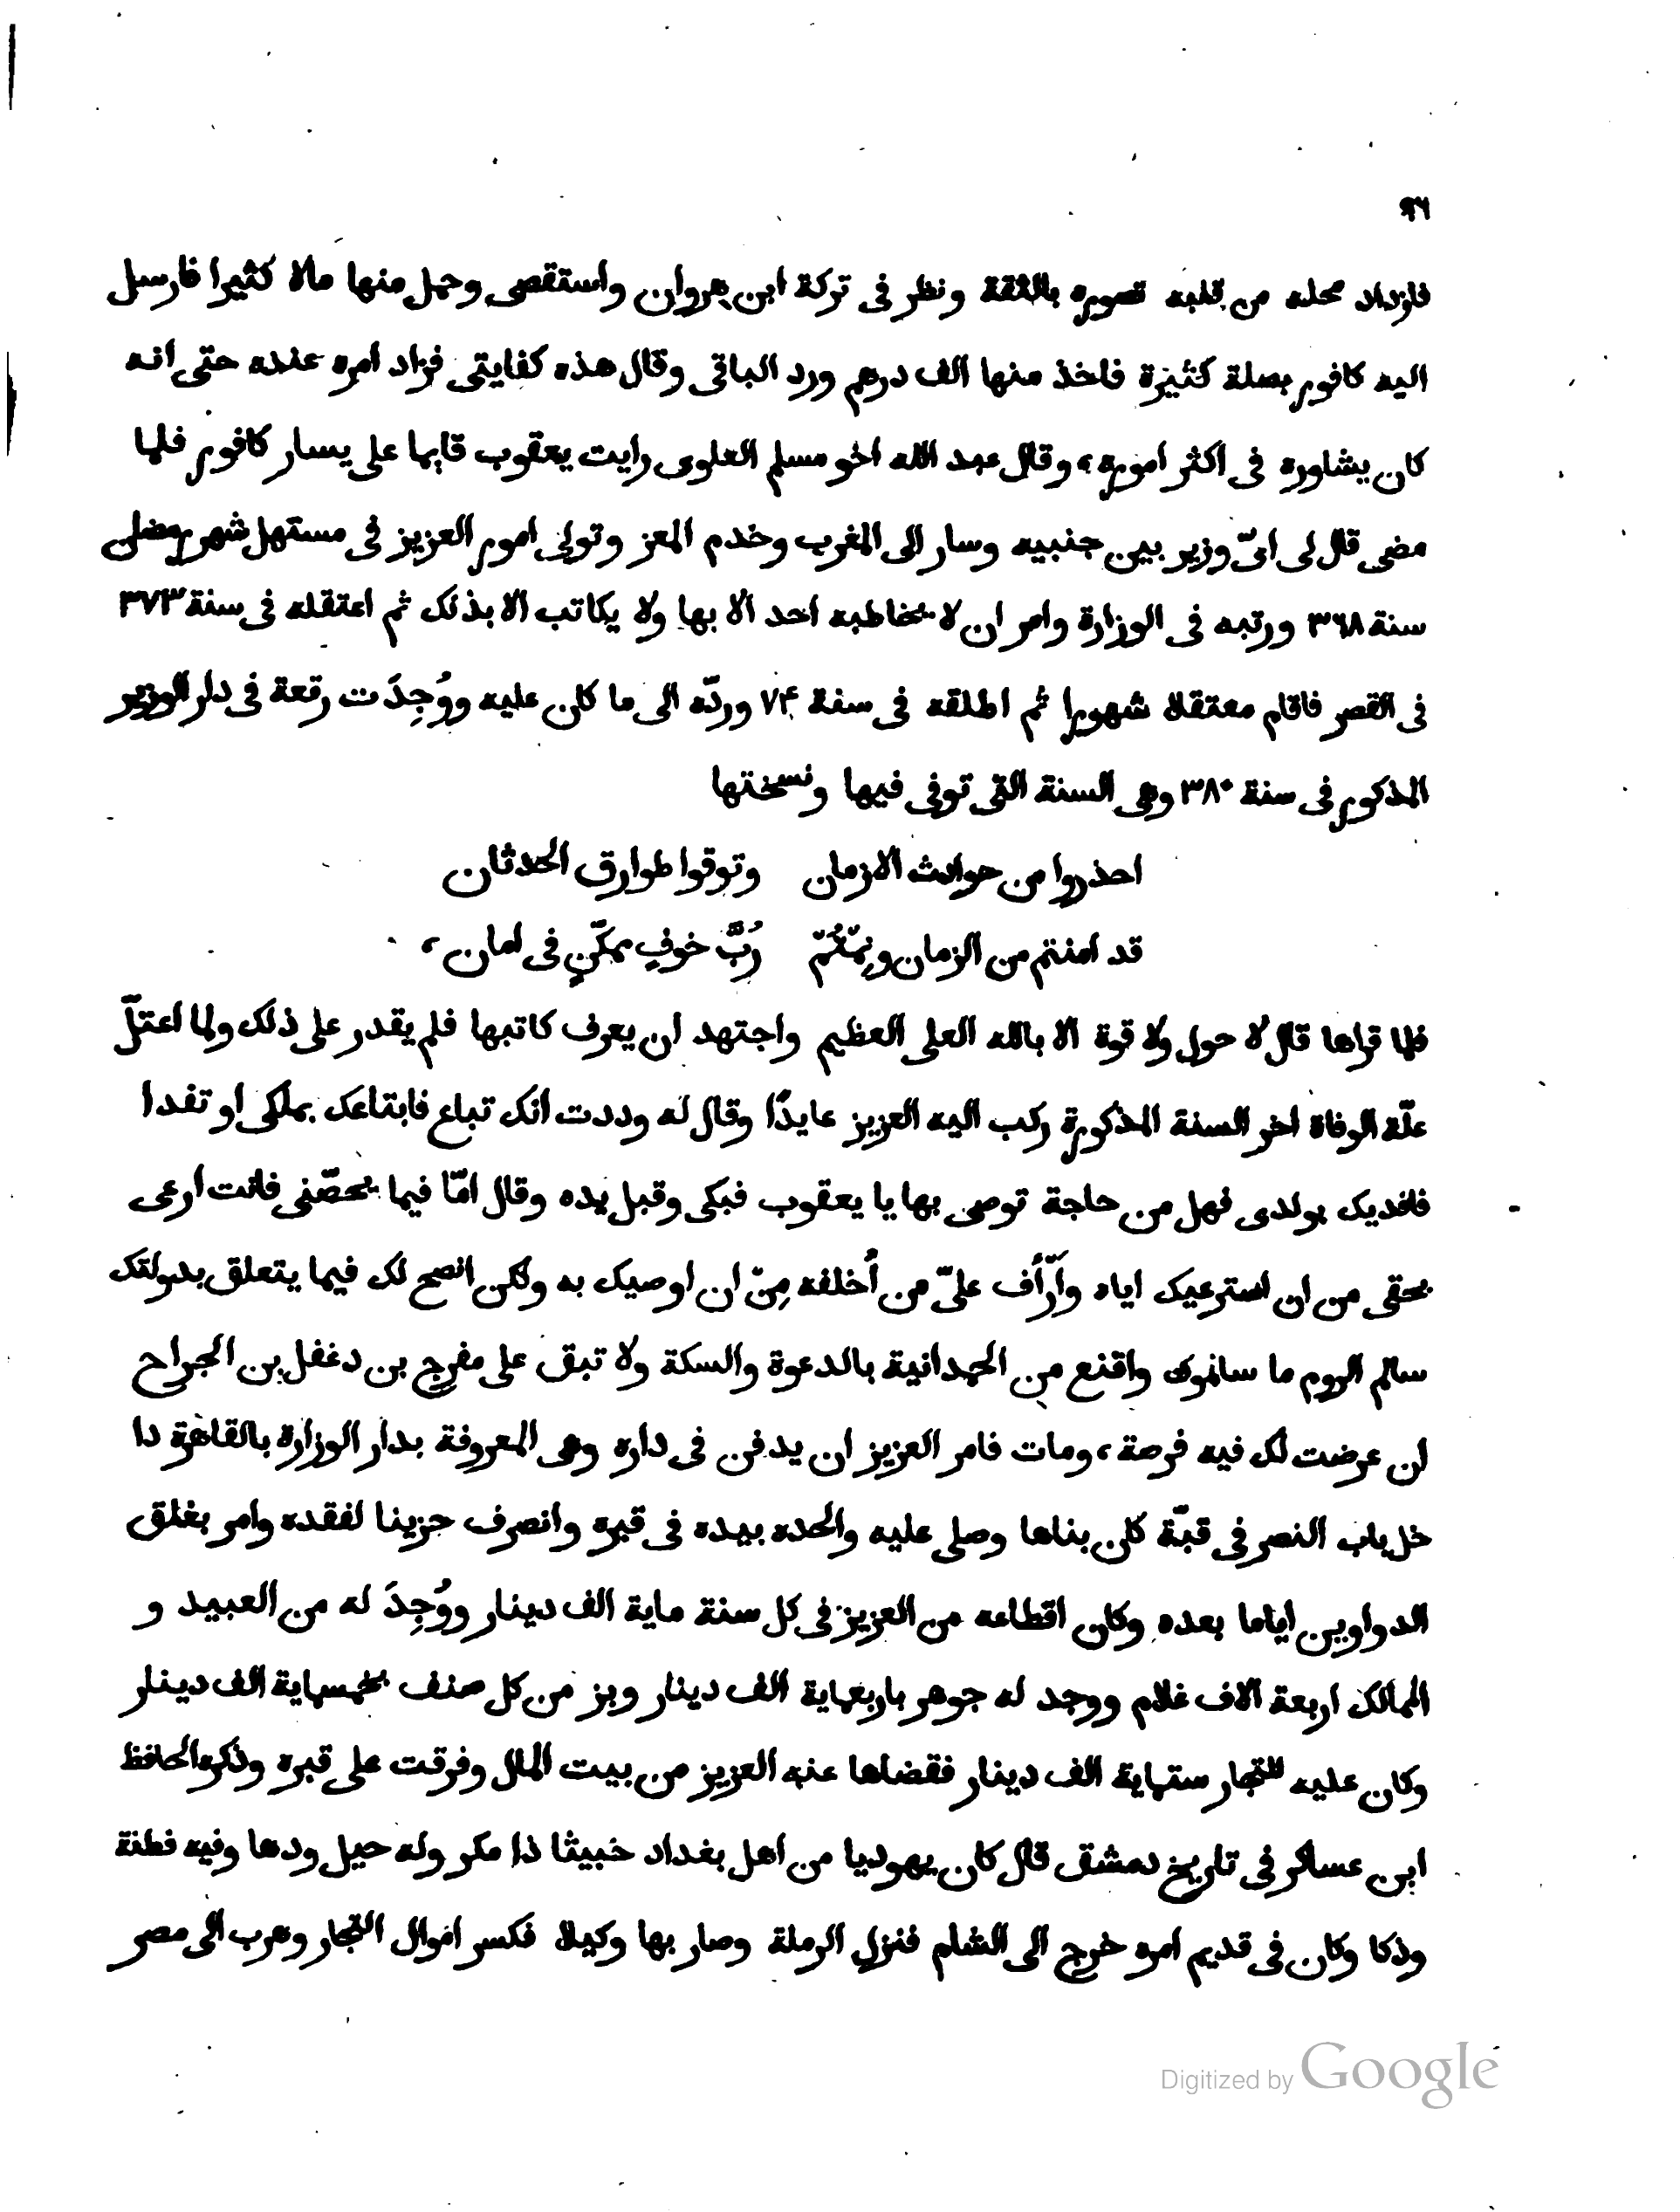 ٩٦
فازداد محله من قلبه تصوره بالثقة ونظر فى تركة ابن هروان واستقصى وحمل منها مالا كثيرا فارسل
اليه كافور بصلة كثيرة فاخذ منها الف درهم ورد الباقى وقال هذه كفايتى فزاد امره عنده حتى انه
كان يشاوره فى اكثر اموره، وقال عبد الله اخو مسلم العلوى رايت يعقوب قايما على يسار كافور فلما
مضى قال لى اىّ وزير بين جنبيه وسار الى المغرب وخدم المعز وتولى امور العزيز فى مستهل شهر رمضان
سنة ٣٦٨ ورتبه فى الوزارة وامر ان لا يخاطبه احد الا بها ولا يكاتب الا بذلك ثم اعتقله فى سنة ٣٧٣
فى القصر فاقام معتقلا شهورا ثم اطلقه فى سنة ٧۴ وردّه الى ما كان عليه ووُجِدَت رقعة فى دار الوزير
المذكور فى سنة ٣٨٠ وهى السنة التى توفى فيها ونسختها
احذروا من حوادث الازمان وتوقوا طوارق الحدثان
قد امنتم من الزمان ونِمْتُمْ رُبَّ خوفٍ مكّنٍ فى امان،
فلما قراها قال لا حول ولا قوة الا بالله العلى العظيم واجتهد ان يعرف كاتبها فلم يقدر على ذلك ولما اعتلّ
علّة الوفاة اخر السنة المذكورة ركب اليه العزيز عايدًا وقال له وددت انك تباع فابتاعك بملكى او تفدا
فافديك بولدى فهل من حاجة توصى بها يا يعقوب فبكى وقبل يده وقال امّا فيما يخصّنى فانت ارعى
بحقى من ان استرعيك اياه وأَرْأف علىّ من أُخلفه مِنْ ان اوصيك به ولكن انصح لك فيما يتعلق بدولتك
سالم الروم ما سالموك واقنع من الحمدانية بالدعوة والسكة ولا تبق على مفرج بن دغفل بن الجراح
ان عرضت لك فيه فرصة، ومات فامر العزيز ان يدفن فى داره وهى المعروفة بدار الوزارة بالقاهرة دا
خل باب النصر فى قبّة كان بناها وصلى عليه والحده بيده فى قبره وانصرف حزينا لفقده وامر بغلق
الدواوين اياما بعده وكان اقطاعه من العزيز فى كل سنة ماية الف دينار ووُجِدَ له من العبيد و
الممالك اربعة الاف غلام ووجد له جوهر باربعماية الف دينار وبز من كل صنف بخمسماية الف دينار
وكان عليه للتجار ستماية الف دينار فقضاها عنه العزيز من بيت المال وفرقت على قبره وذكره الحافظ
ابن عساكر فى تاريخ دمشق قال كان يهوديا من اهل بغداد خبيثا ذا مكر وله حيل ودها وفيه فطنة
وذكا وكان فى قديم امره خرج الى الشام فنزل الرملة وصار بها وكيلا فكسر اموال التجار وهرب الى مصر
Digitized by Google